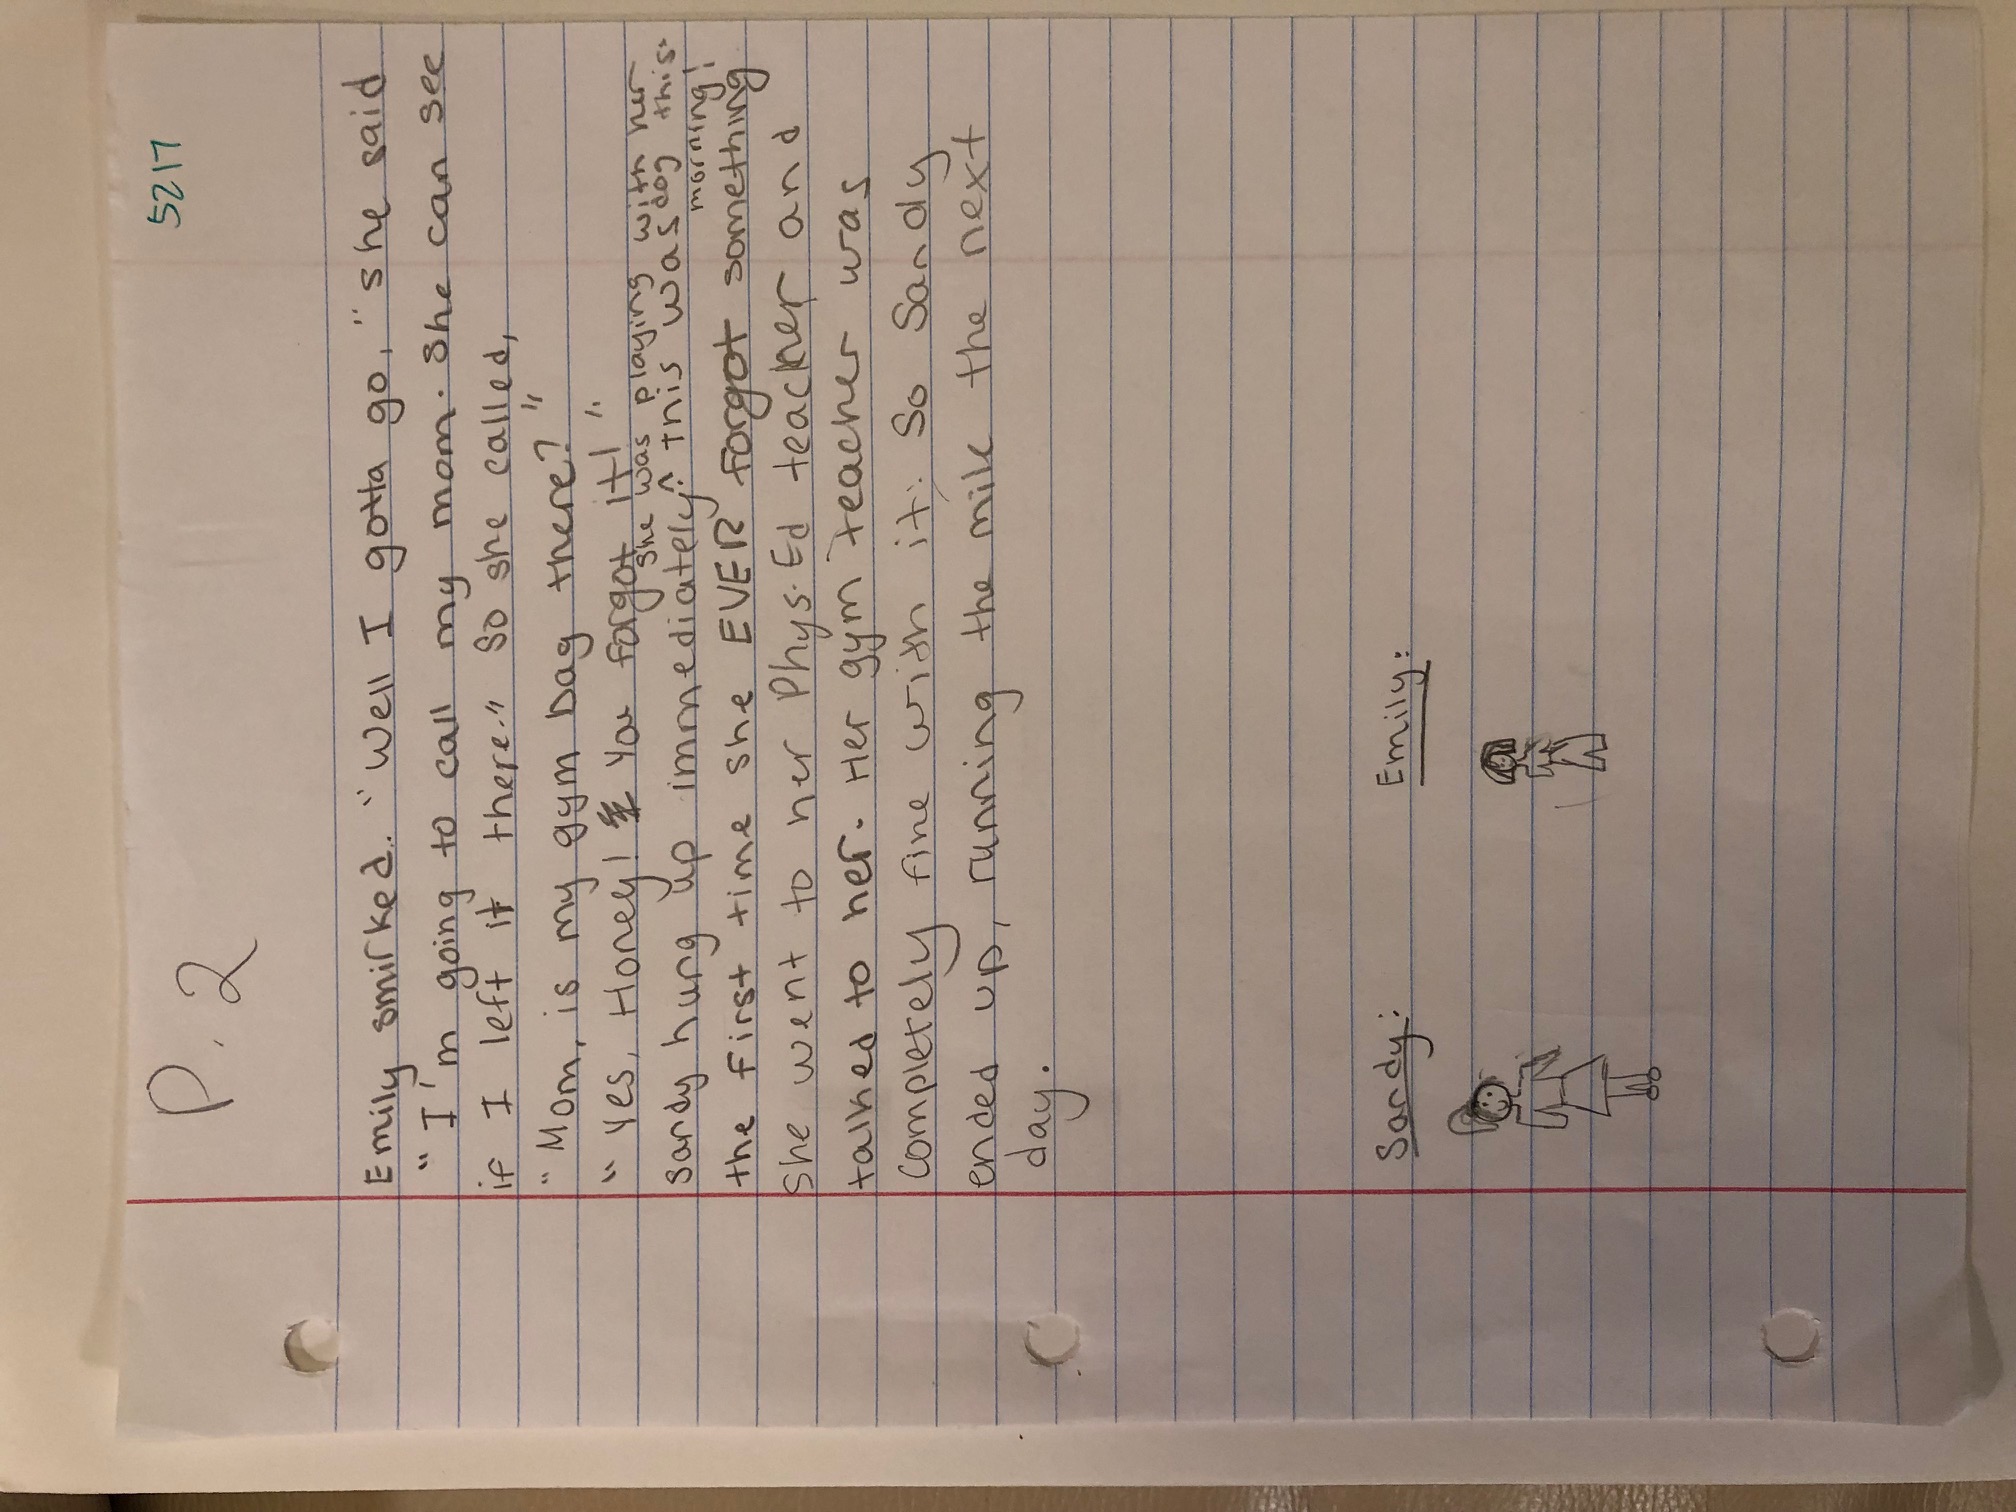 P. 2
5217
Emily smirked. "Well I gotta go," she said
"I'm going to call my mom. She can see
if I left it there." So she called,
"Mom, is my gym bag there?"
"Yes, Honey! You forgot it!"
she was playing with her
Sandy hung up immediately.^ This was dog this
morning!
the first time she EVER forgot something
She went to her Phys. Ed teacher and
talked to her. Her gym teacher was
completely fine with it. So Sandy
ended up, running the mile the next
day.
Sandy:
Emily: